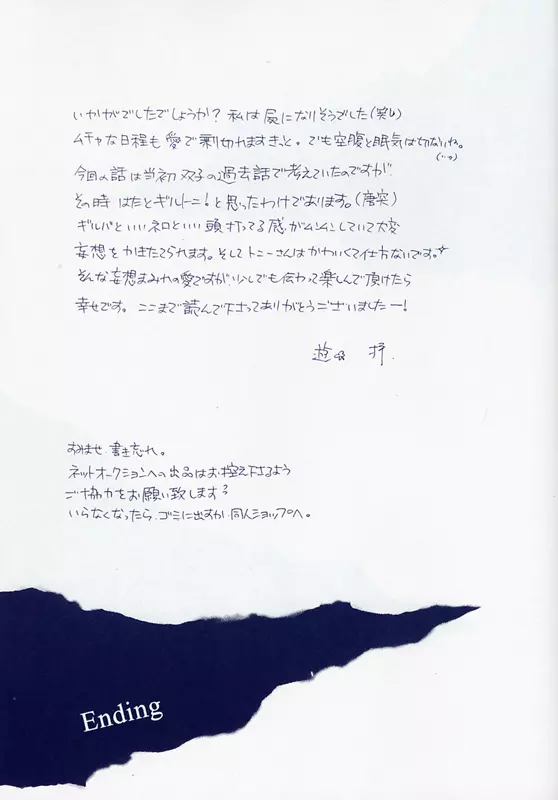 いかがでしたでしょうか？ 私は屍になりそうでした(笑)
ムチャな日程も愛で乗り切れますきっと。でも空腹と眠気は切ないね。
今回の話は当初 双子の過去話で考えていたのですが
その時 はたとギルトニー！と思ったわけであります。(唐突)
ギルバといいネロといい 頭打ってる感がムンムンしていて大変
妄想をかきたてられます。そしてトニーさんはかわいくて仕方ないです。
そんな妄想まみれの愛ですが、少しでも伝わって楽しんで頂けたら
幸せです。ここまで読んで下さってありがとうございましたー！
すみませ、書き忘れ。
ネットオークションへの出品はお控え下さるよう
ご協力をお願い致します
いらなくなったら、ゴミに出すか、同人ショップへ。
Ending